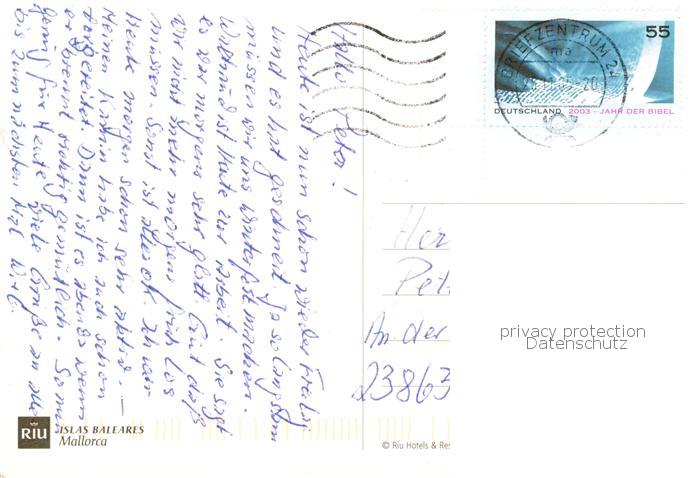 Hallo Peter!
Heute ist nun schon wieder Freitag
und es hat geschneit. Ja so langsam
müssen wir uns winterfest machen.
Waltraud ist heute zur Arbeit. Sie sagt
es war morgens sehr glatt. Gut daß
wir nicht mehr morgens früh los
müssen. Sonst ist alles ok. Ich war
heute morgen schon sehr aktiv. –
Meinen Kamin habe ich auch schon
vorbereitet. Dann ist es abends wenn
er brennt richtig gemütlich. So nun
genug für heute viele Grüße an alle
bis zum nächsten Mal W+G.
BRIEFZENTRUM 2
ma
20
55
DEUTSCHLAND 2003 - JAHR DER BIBEL
Her
Pet
An der
23863
privacy protection
Datenschutz
RIU
ISLAS BALEARES
Mallorca
© Riu Hotels & Res